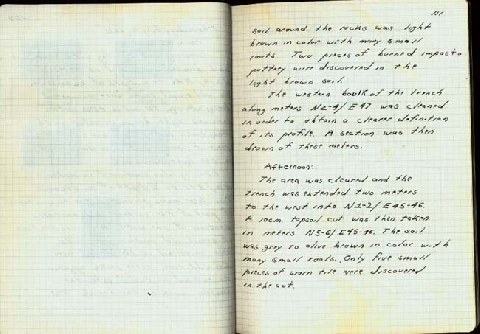 soil around the rocks was light
brown in color with many small
roots. Two pieces of burned impasto
pottery were discovered in the
light brown soil.
The western baulk of the trench
along meters N2-4/E47 was cleaned
in order to obtain a clearer definition
of its profile. A section was then
drawn of these meters.
Afternoon:
The area was cleared and the
trench was extended two meters
to the west into N1-2/E45-46.
A 10cm topsoil cut was then taken
in meters /E45-46. The soil
was grey to olive brown in color with
many small roots. Only five small
pieces of worn tile were discovered
in the cut.